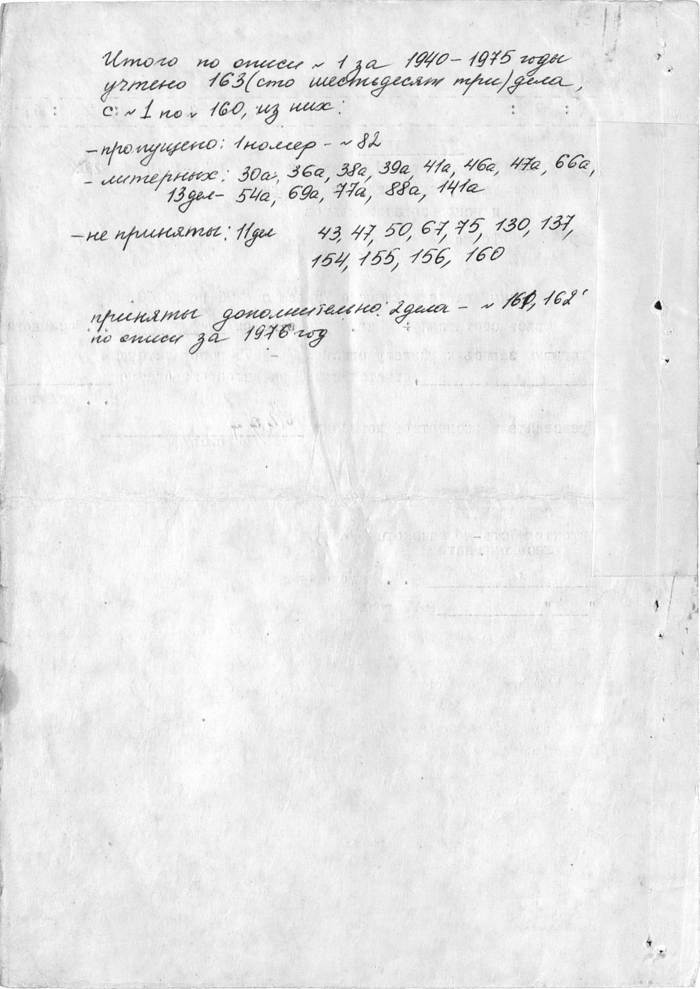 Итого по описи № 1 за 1940-1975 годы
учтено 163 (сто шестьдесят три) дела,
с № 1 по № 160, из них:
- пропущено: 1 номер - № 82
- литерных: 30а, 36а, 38а, 39а, 41а, 46а, 47а, 66а,
13 дел - 54а, 69а, 77а, 88а, 141а
- не приняты: 11 дел 43, 47, 50, 67, 75, 130, 137,
154, 155, 156, 160
приняты дополнительно: 2 дела - № 161, 162
по описи за 1976 год